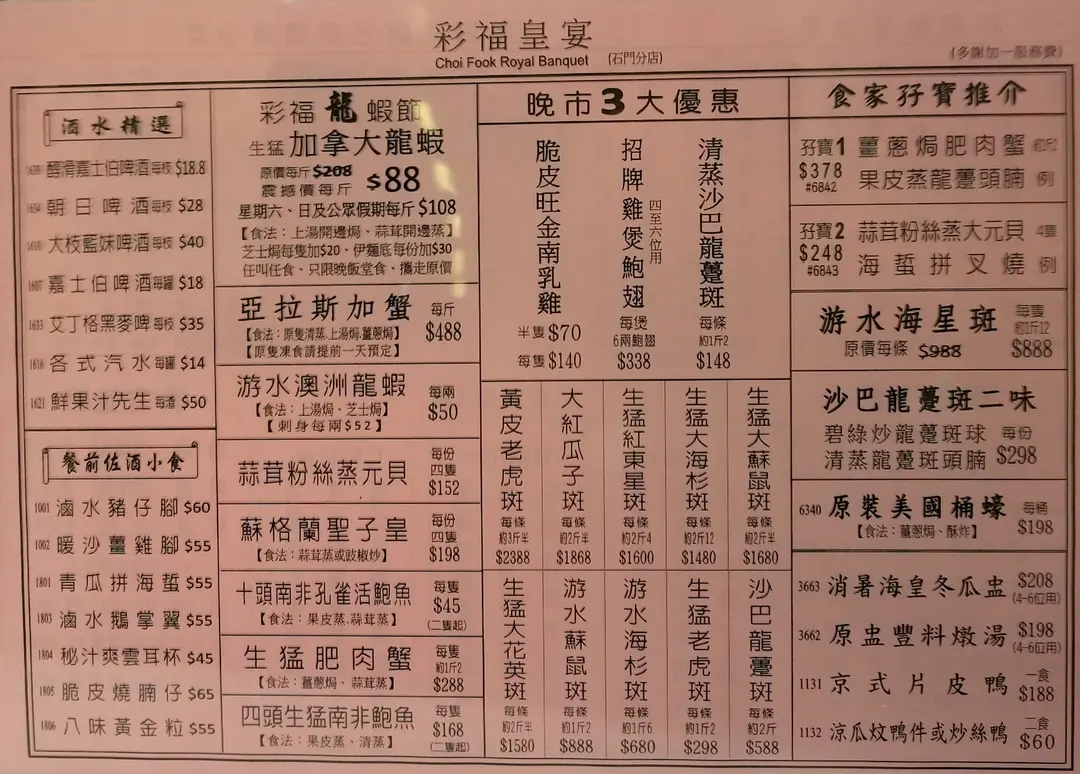 彩福皇宴
Choi Fook Royal Banquet (石門分店)
(多謝加一服務費)
酒水精選
醇滑嘉士伯啤酒 每枝 $18.8
1634 朝日啤酒 每枝 $28
1610 大枝藍妹啤酒 每枝 $40
1607 嘉士伯啤酒 每罐 $18
1633 艾丁格黑麥啤 每枝 $35
1616 各式汽水 每罐 $14
1621 鮮果汁先生 每渣 $50
餐前佐酒小食
1001 滷水豬仔腳 $60
1002 暖沙薑雞腳 $55
1801 青瓜拼海蜇 $55
1803 滷水鵝掌翼 $55
1804 秘汁爽雲耳杯 $45
1805 脆皮燒腩仔 $65
1806 八味黃金粒 $55
彩福龍蝦節
生猛加拿大龍蝦
原價每斤 $208
震撼價每斤 $88
星期六、日及公眾假期每斤 $108
【食法：上湯開邊焗、蒜茸開邊蒸】
芝士焗每隻加$20、伊麵底每份加$30
任叫任食、只限晚飯堂食、攜走原價
亞拉斯加蟹 每斤 $488
【食法：原隻清蒸.上湯焗.薑蔥焗】
【原隻凍食請提前一天預定】
游水澳洲龍蝦 每兩 $50
【食法：上湯焗、芝士焗】
【刺身每兩$52】
蒜茸粉絲蒸元貝 每份 四隻 $152
蘇格蘭聖子皇 每份 四隻 $198
【食法：蒜茸蒸或豉椒炒】
十頭南非孔雀活鮑魚 每隻 $45
【食法：果皮蒸.蒜茸蒸】 (二隻起)
生猛肥肉蟹 每隻 約1斤2 $288
【食法：薑蔥焗、蒜茸蒸】
四頭生猛南非鮑魚 每隻 $168
【食法：果皮蒸、清蒸】 (二隻起)
晚市3大優惠
脆皮旺金南乳雞
半隻 $70
每隻 $140
招牌雞煲鮑翅
四至六位用
每煲
6兩鮑翅
$338
清蒸沙巴龍躉斑
每條
約1斤2
$148
黃皮老虎斑 每條 約3斤半 $2388
大紅瓜子斑 每條 約2斤半 $1868
生猛紅東星斑 每條 約2斤4 $1600
生猛大海杉斑 每條 約2斤12 $1480
生猛大蘇鼠斑 每條 約2斤半 $1680
生猛大花英斑 每條 約2斤半 $1580
游水蘇鼠斑 每條 約1斤2 $888
游水海杉斑 每條 約1斤6 $680
生猛老虎斑 每條 約1斤2 $298
沙巴龍躉斑 每條 約2斤 $588
食家孖寶推介
孖寶1 薑蔥焗肥肉蟹 約1斤2
$378 #6842 果皮蒸龍躉頭腩 例
孖寶2 蒜茸粉絲蒸大元貝 4隻
$248 #6843 海蜇拼叉燒 例
游水海星斑 每隻 約1斤12
原價每條 $988 $888
沙巴龍躉斑二味
碧綠炒龍躉斑球 每份
清蒸龍躉斑頭腩 $298
6340 原裝美國桶蠔 每桶 $198
【食法：薑蔥焗、酥炸】
3663 消暑海皇冬瓜盅 $208 (4-6位用)
3662 原盅豐料燉湯 $198 (4-6位用)
1131 京式片皮鴨 一食 $188
1132 涼瓜炆鴨件或炒絲鴨 二食 $60